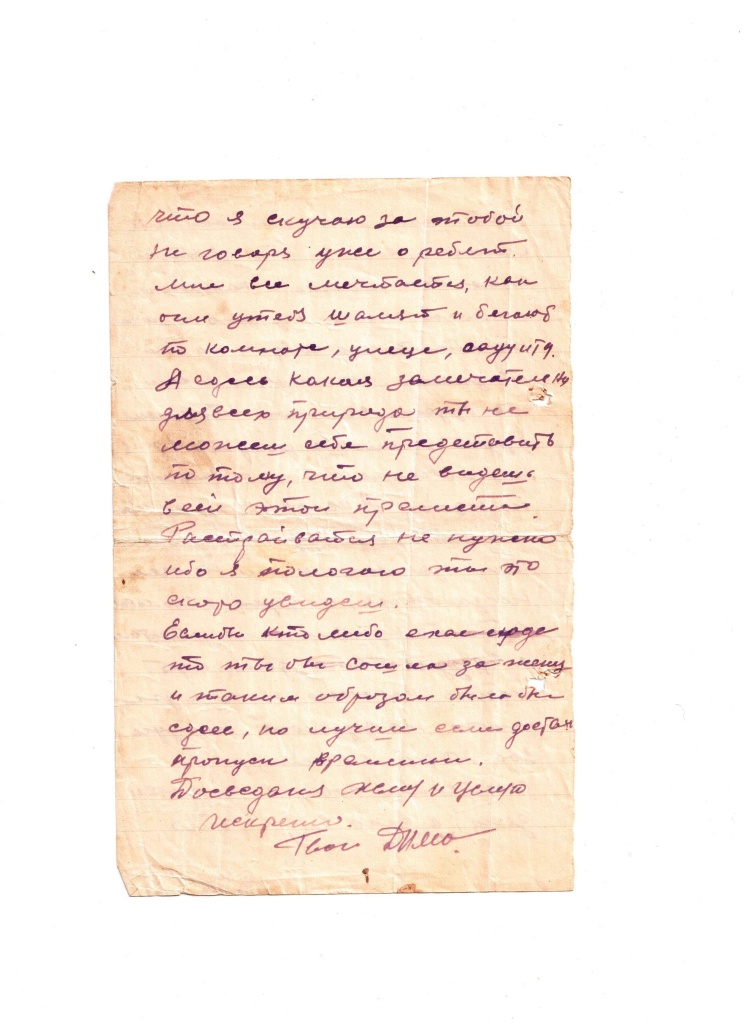 что я скучаю за тобой
не говоря уже о ребят.
мне все мечтается, как
они у тебя шамят и бегают
по комнате, улеце, саду и т.д.
А сдесь какая замечательна
для всех природа ты не
можеш себе представить
по тому, что не видеш
всей этой прелисти.
Расстраиватся не нужно
ибо я пологаю ты это
скоро увидеш.
Еслибы кто либо ехал сюда
то ты бы сошла за жену
и таким образом былабы
сдесь, но лучши если достан
пропуск времени.
Досведания жему и целую
искренно.
Твой Дима.